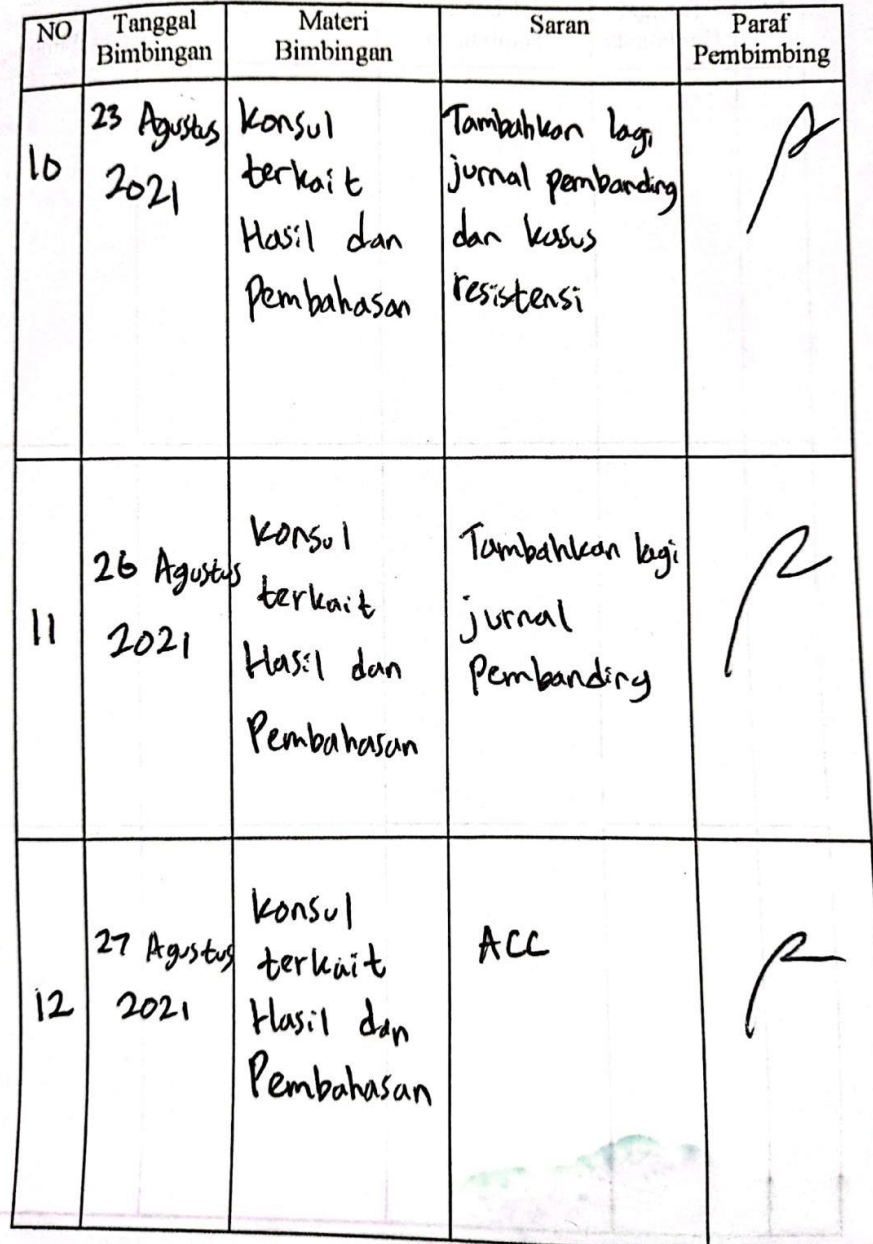 NO Tanggal Bimbingan Materi Bimbingan Saran Paraf Pembimbing
10
23 Agustus
2021
Konsul
terkait
Hasil dan
Pembahasan
Tambahkan lagi
jurnal pembanding
dan kasus
resistensi
11
26 Agustus
2021
Konsul
terkait
Hasil dan
Pembahasan
Tambahkan lagi
jurnal
Pembanding
12
27 Agustus
2021
Konsul
terkait
Hasil dan
Pembahasan
ACC